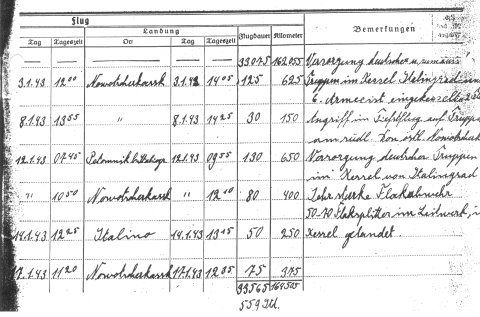 Flug
Landung Flugdauer Kilometer Bemerkungen
Tag Tageszeit Ort Tag Tageszeit
33075 162055 Versorgung deutscher u. rumän.
3.1.43 12⁰⁰ Nowotscherkassk 3.1.43 14⁰⁵ 125 625 Truppen im Kessel
6. Armee ist eingekesselt
8.1.43 13⁵⁵ " 8.1.43 14²⁵ 30 150 Angriff im Tiefflug auf Truppen
am südl. Don östl. Nowotscherk
12.1.43 07⁴⁵ 12.1.43 09⁵⁵ 130 650 Versorgung deutscher Truppen
im Kessel von Stalingrad
" 10⁵⁰ Nowotscherkassk " 12¹⁰ 80 400 Sehr starke Flakabwehr
50-70 Flaksplitter im Leitwerk, i
14.1.43 12²⁵ Stalino 14.1.43 13¹⁵ 50 250 Kessel gelandet
17.1.43 11²⁰ Nowotscherkassk 17.1.43 12³⁵ 75 375
33565 164505
559 Std.